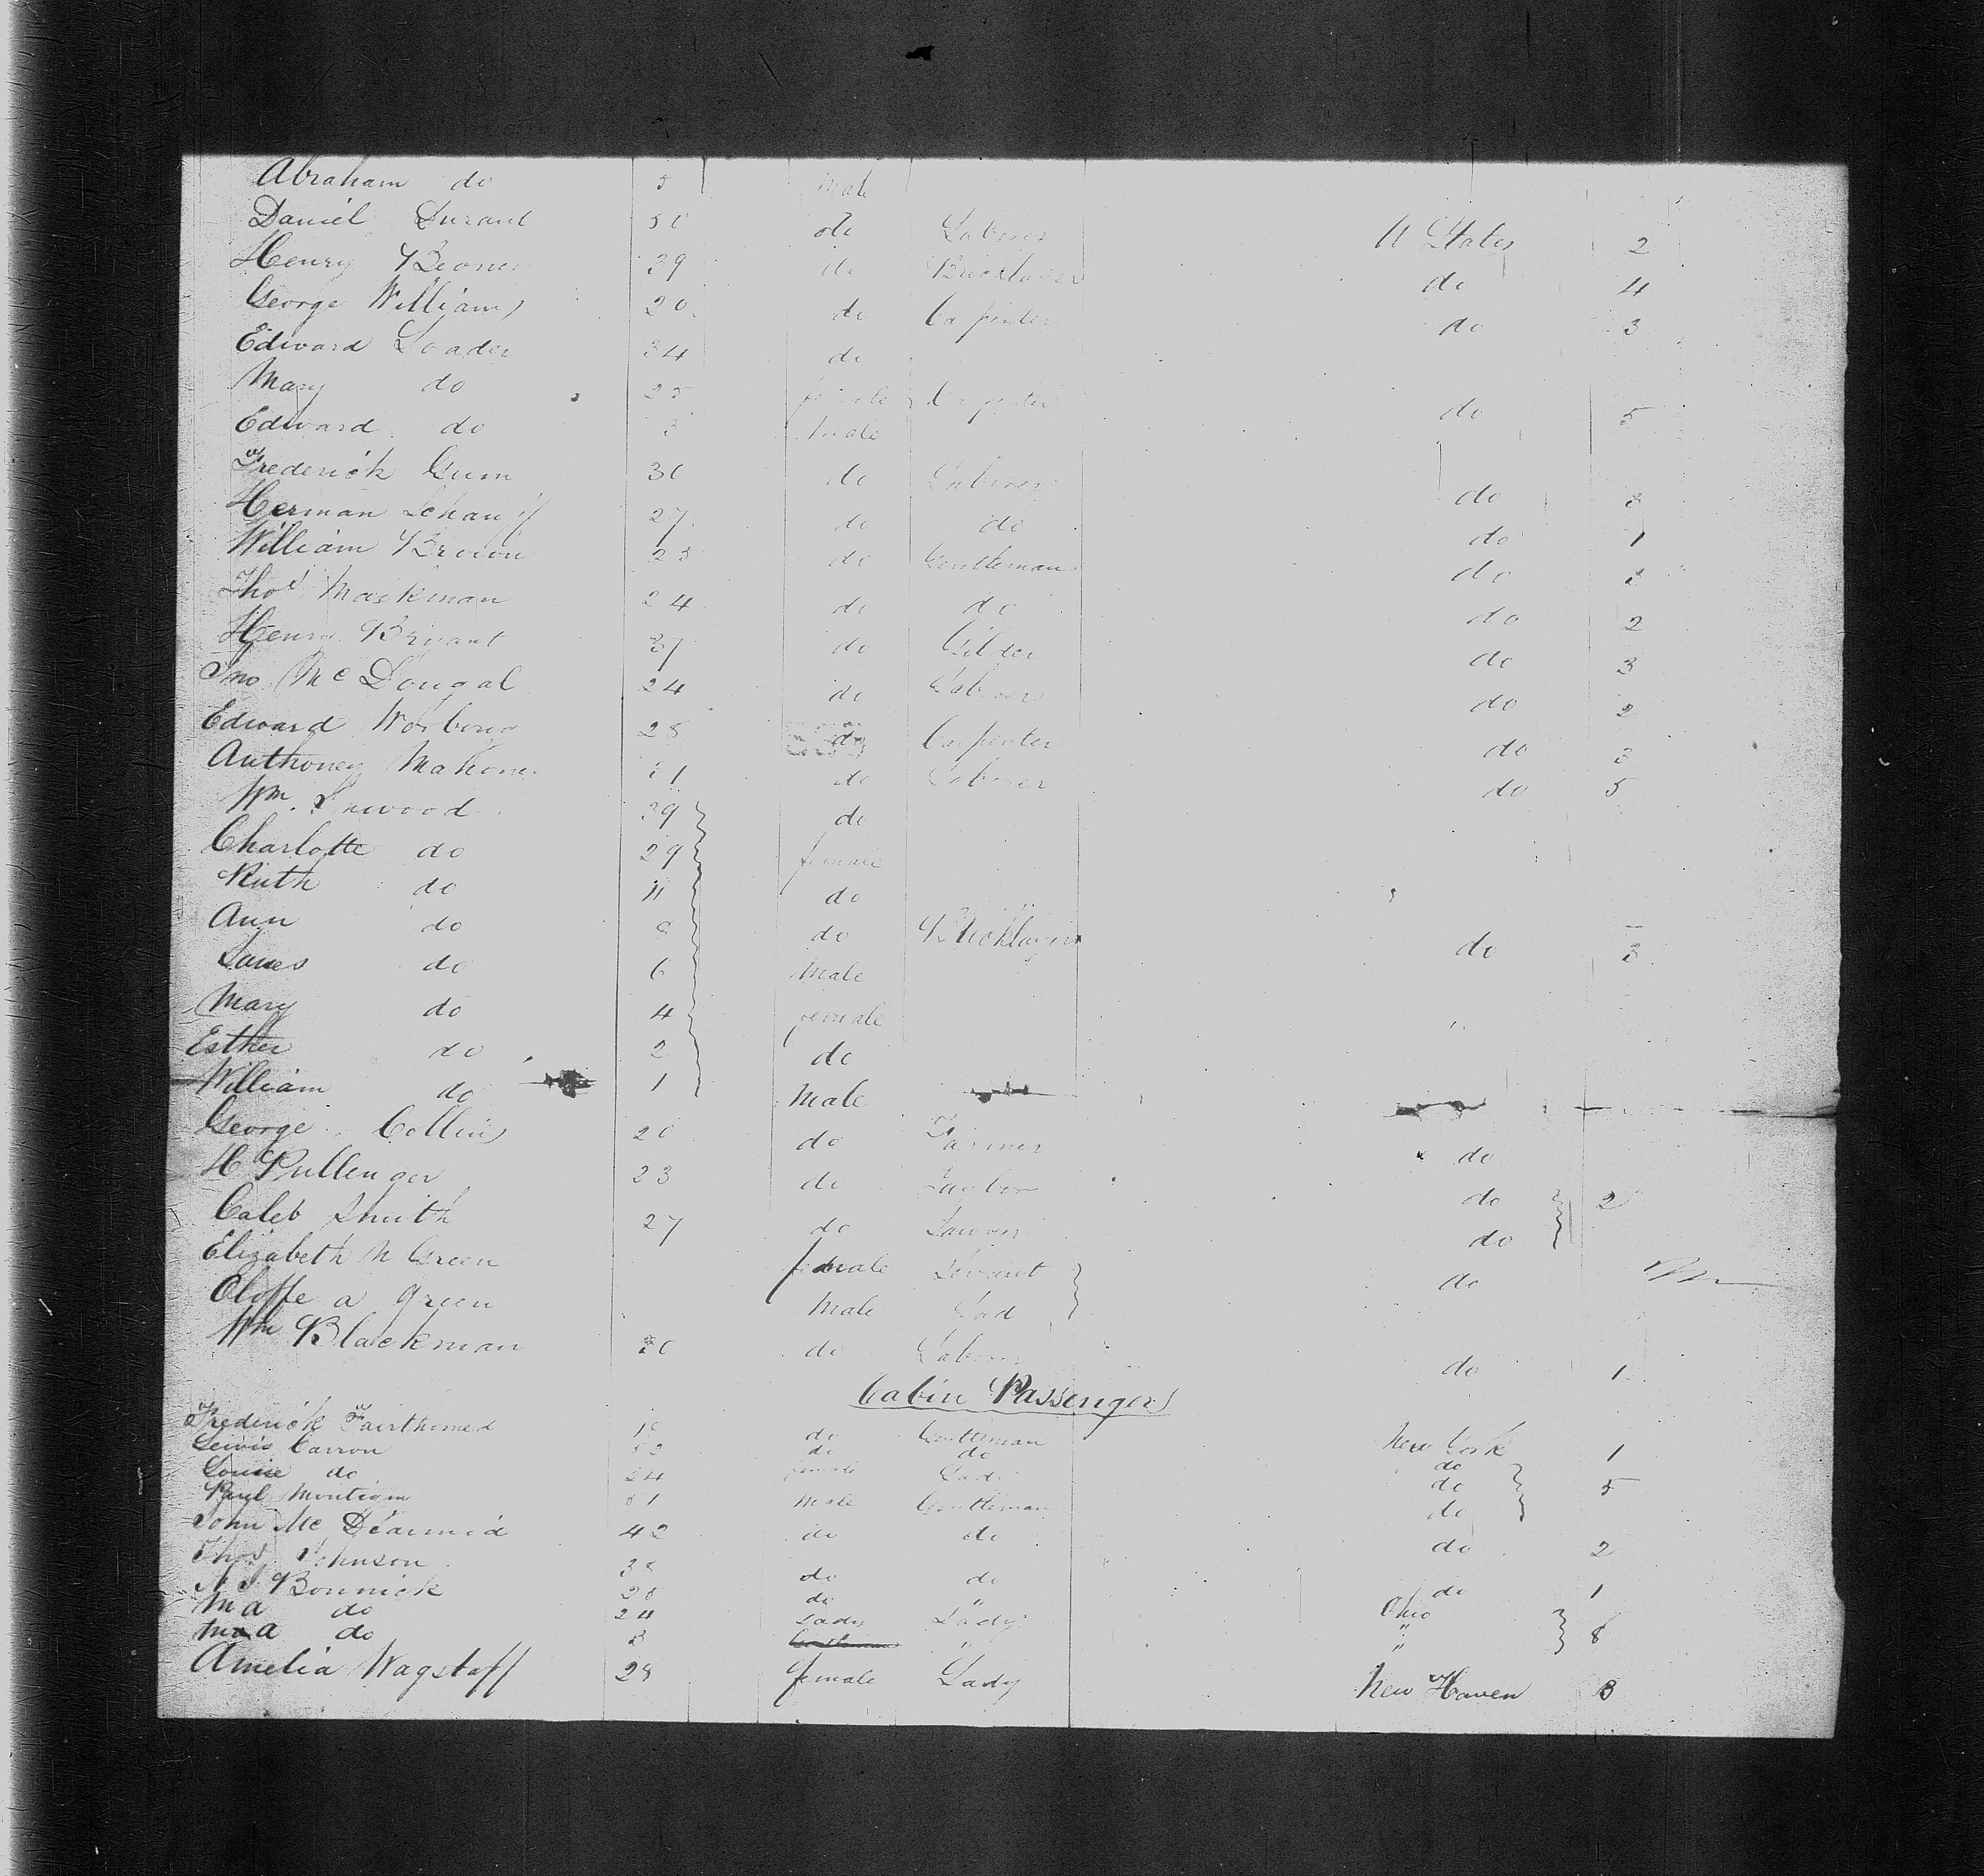 Abraham do 5 Male
Daniel Durant 50 do Labourer U States 2
Henry 39 do Bricklayer do 4
George Williams 20 do Carpenter do 3
Edward Loader 34 do
Mary do 25 female Carpenter do 5
Edward do 3 Male
Frederick Gum 30 do Labourer do 3
Herman Schauff 27 do do do 1
William Brown 25 do Gentleman do 3
Thos Markman 24 do do do 2
Henry Bryant 37 do Gilder do 3
Jno McDougal 24 do Labourer do 2
Edward 28 do Carpenter do 3
Anthoney Mahoney 21 do Labourer do 5
Wm. Inwood 39 do
Charlotte do 29 female
Ruth do 11 do
Ann do 8 do Bricklayer do 3
James do 6 Male
Mary do 4 female
Esther do 2 do
William do 1 Male
George Collins 20 do Farmer do
H Pullenger 23 do Taylor do 2
Caleb Smith 27 do do
Elizabeth M Green female Servant do
Cliffe a Green Male Lad
Wm Blackman 20 do Labourer do 1
Cabin Passengers
Frederick Fairthorned do Gentleman New York 1
Lewis Carron 52 do do do
Louise do 24 female Lady do 5
Paul Montigm 51 Male Gentleman do
John McDearmid 42 do do do 2
Thos. Johnson 38 do do do 1
Bonnick 28 do " Ohio
M a do 24 Lady Lady " 8
M a do 3 " "
Amelia Wagstaff 28 female Lady New Haven 3